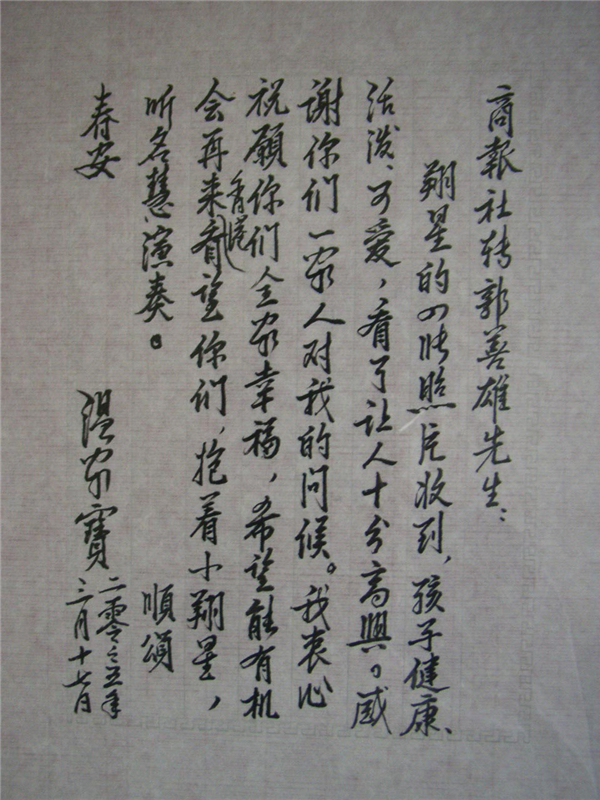 商報社转郭善雄先生：
翔星的四张照片收到，孩子健康、
活泼、可爱，看了让人十分高興。感
谢你们一家人对我的问候。我衷心
祝願你们全家幸福，希望能有机
会再来香港看望你们，抱着小翔星，
听名慧演奏。
順頌
春安
温家寶
二零零五年
三月十七日